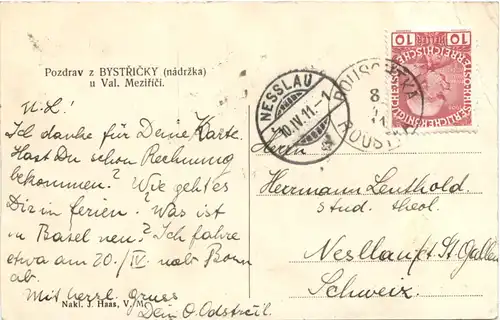 Pozdrav z BYSTŘIČKY (nádržka)
u Val. Meziříčí.
N. L!
Ich danke für Deine Karte.
Hast Du schon Rechnung
bekommen? Wie geht es
Dir in Ferien? Was ist
in Basel neu? Ich fahre
etwa am 20./IV. nach Bonn
ab.
Mit herzl. Gruss
Dein O. Odstrčil.
Nakl. J. Haas, V./M.
NESSLAU
10.IV.11.-1
ROUSCHTKA
8
11
ROUST
10 HELLER 10
Herrn
Herrmann Leuthold.
stud. theol.
Nesslau St. Gallen
Schweiz.